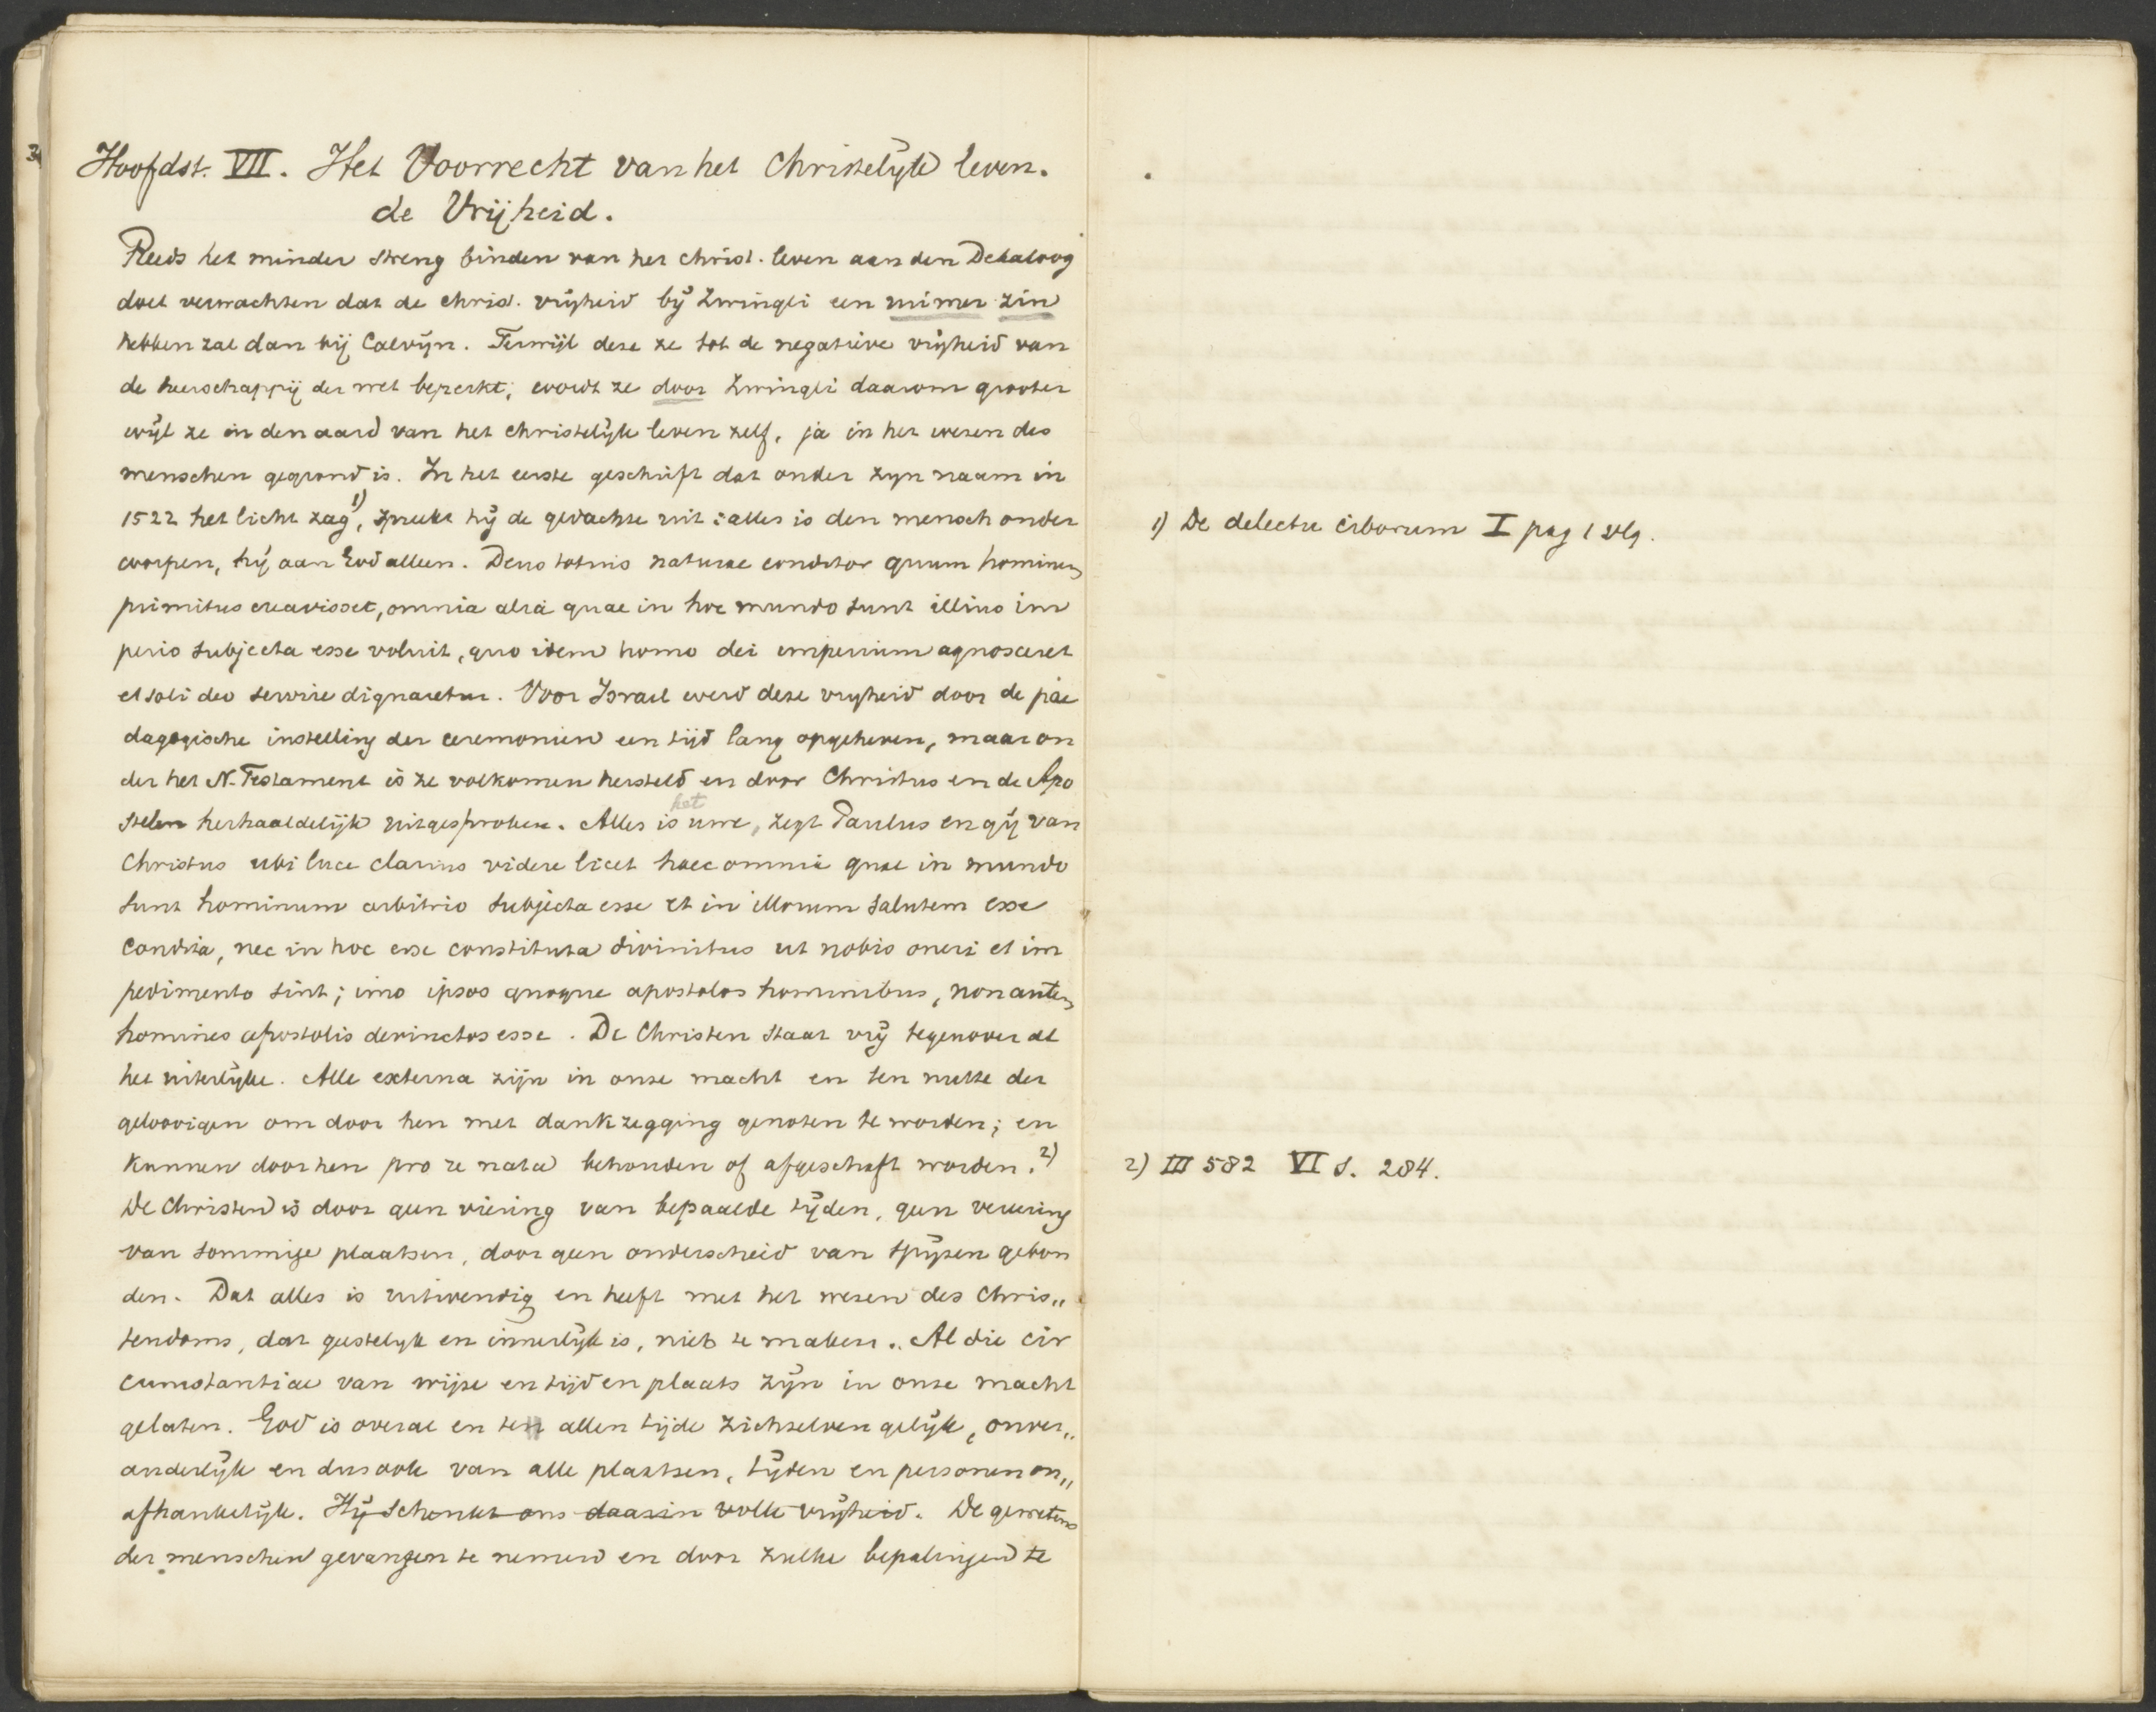 Hoofdst. VII. Het Voorrecht van het Christelijke leven.
de Vrijheid.
Reeds het minder streng binden van het christ. leven aan den Dekaloog
doet verwachten dat de christ. vrijheid bij Zwingli een ruimer zin
hebben zal dan bij Calvijn. Terwijl deze ze tot de negatieve vrijheid van
de heerschappij der wet beperkt; wordt ze door Zwingli daarom grooter
wijl ze in den aard van het christelijke leven zelf, ja in het wezen des
menschen gegrond is. In het eerste geschrift dat onder zijn naam in
1522 het licht zag 1), spreekt hij de gedachte uit: alles is den mensch onder
worpen, hij aan God alleen. Deus totius naturae conditor quum hominem
primitus creavisset, omnia alia quae in hoc mundo sunt illius im
perio subjecta esse voluit, quo idem homo dei imperium agnosceret
et soli deo servire dignaretur. Voor Israel werd deze vrijheid door de pae
dagogische instelling der ceremonien een tijd lang opgeheven, maar on
der het N. Testament is ze volkomen hersteld en door Christus en de Apo
stelen herhaaldelijk uitgesproken. Alles is het uwe, zegt Paulus en gij van
Christus ubi luce clarius videre licet haec omnia quae in mundo
sunt hominum arbitrio subjecta esse et in illorum salutem esse
condita, nec in hoc esse constituta divinitus ut nobis oneri et im
pedimento sint; imo ipsos quoque apostolos hominibus, non autem
homines apostolis devinctos esse. De Christen staat vrij tegenover al
het uiterlijke. Alle externa zijn in onze macht en ten nutte der
geloovigen om door hen met dankzegging genoten te worden; en
kunnen door hen pro re nata behouden of afgeschaft worden. 2)
De Christen is door geen viering van bepaalde tijden, geen vereering
van sommige plaatsen, door geen onderscheid van spijzen gebon
den. Dat alles is uitwendig en heeft met het wezen des Chris„
tendoms, dat geestelijk en innerlijk is, niets te maken. Al die cir
cumstantiae van wijze en tijd en plaats zijn in onze macht
gelaten. God is overal en ten allen tijde zichzelven gelijk, onver„
anderlijk en dus ook van alle plaatsen, tijden en personen on„
afhankelijk. Hij schenkt ons daarin volle vrijheid. De gewetens
der menschen gevangen te nemen en door zulke bepalingen te
1) De delectu ciborum I pag 1 vlg.
2) III 582 VI S. 284.